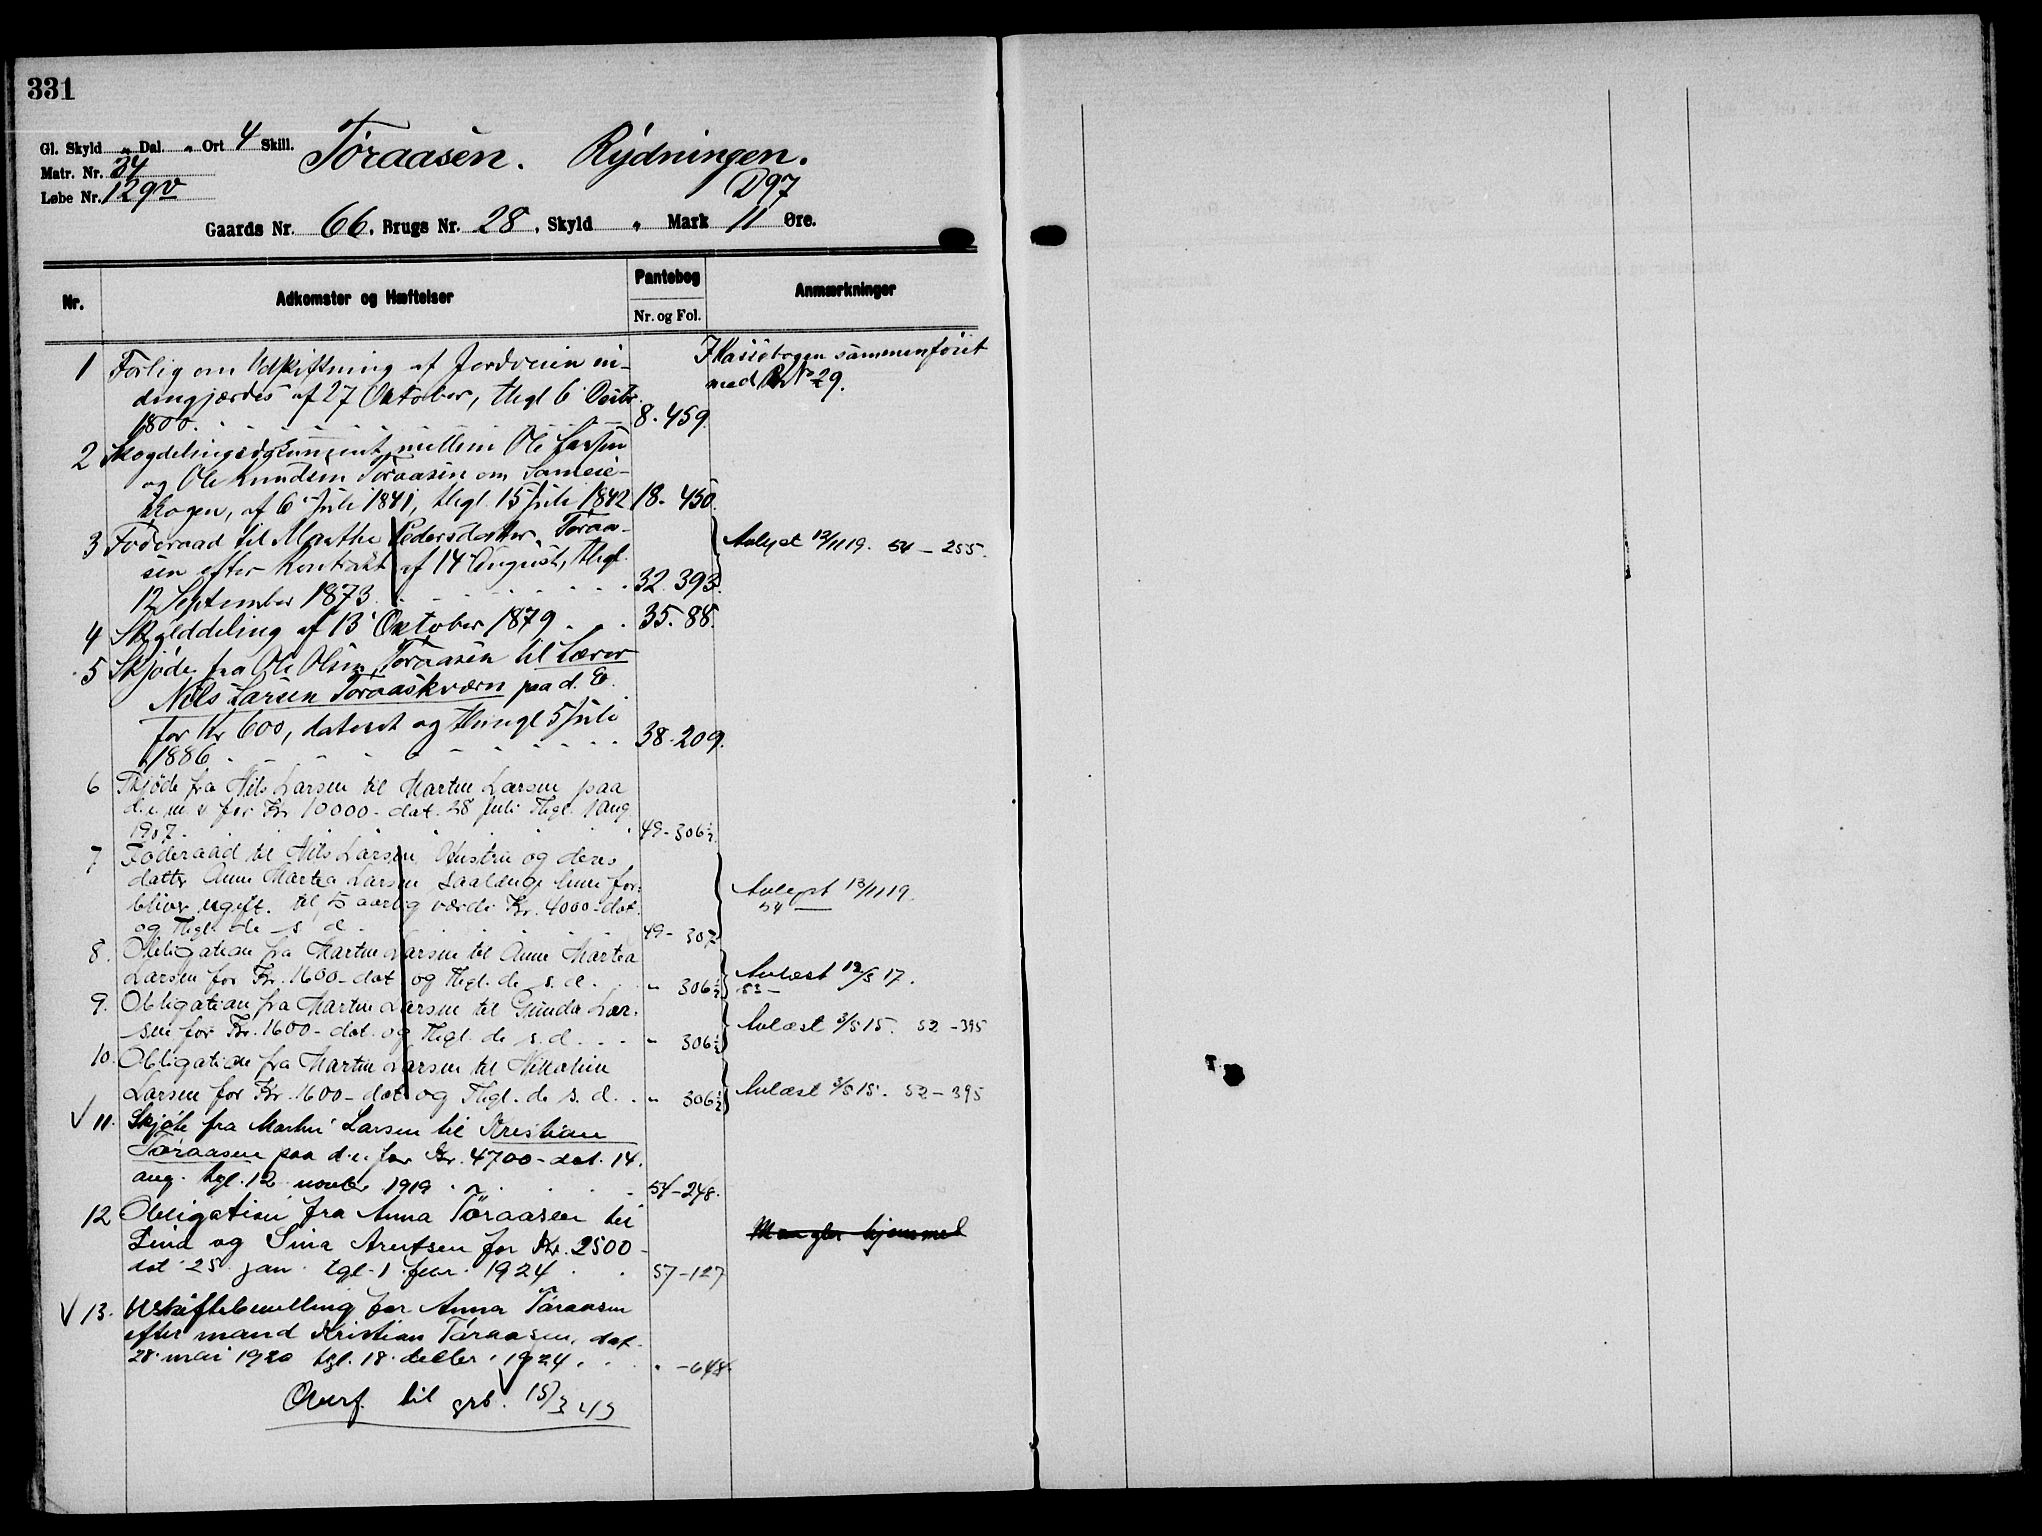 331
Gl. Skyld " Dal. " Ort 4 Skill.
Töraasen. Rydningen.
Matr. Nr. 34
Løbe Nr. 129v
D97
Gaards Nr. 66. Brugs Nr. 28. Skyld " Mark 11 Øre.
Nr.
Adkomster og Hæftelser
Pantebog
Nr. og Fol.
Anmærkninger
1 Forlig om Udskiftning af Jordveien in-
dengjærdes af 27 Oktober, thgl 6 Decbr.
1800. 8. 459.
I Kassebogen sammenföiet
med Br No 29.
2 Skogdelingsdokument mellem Ole Larsen
og Ole Knudsen Töraasen om Sameie-
skogen, af 6 Juli 1841, thgl. 15 Juli 1842 18. 450.
3 Föderaad til Marthe Pedersdatter Töraa-
sen efter Kontrakt af 14 August, thgl.
12 September 1873. 32. 393.
Avlyst 12/11 19. 54 - 255.
4 Skylddeling af 13 Oktober 1879. 35. 88.
5 Skjöde fra Ole Olsen Töraasen til Lærer
Nils Larsen Töraaskværn paa d. E.
for Kr 600, dateret og thingl 5 Juli
1886. 38. 209.
6 Skjöde fra Nils Larsen til Martin Larsen paa
d. e. m. v for Kr. 10000- dat. 28 Juli Thgl. 1 aug
1907. 49 - 306 1/2.
7 Föderaad til Nils Larsen, Hustru og deres
datter Anne Martea Larsen saalænge hun for-
bliver ugift. til 5 aarlig værdi Kr. 4000- dat.
og Thgl. de s d. 49 - 307
Avlyst 13/11 19.
54 -
8. Obligation fra Martin Larsen til Anne Martea
Larsen for Kr. 1600- dat og Thgl. de s. d. " 306 1/2
Avlæst 12/3 17.
53 -
9. Obligation fra Martin Larsen til Gunda Lar-
sen for Kr. 1600- dat. og Thgl. de s. d. " 306 1/2
Avlæst 3/5 15. 52 - 395
10. Obligation fra Martin Larsen til
Larsen for Kr. 1600- dat og Thgl. de s. d. " 306 1/2
Avlæst 3/5 15. 52 - 395
V 11. Skjöte fra Martin Larsen til Kristian
Töraasen paa d. e. for Kr. 4700- dat. 14.
aug. tgl. 12 novbr 1919. 54 - 248.
12 Obligation fra Anna Töraasen til
Lina og Sina Arntsen for Kr. 2500-
dat 25 jan. tgl. 1. febr. 1924 57 - 127
Mangler hjemmel
V 13. Uskiftebevilling for Anna Töraasen
efter mand Kristian Töraasen, dat.
28. mai 1920 tgl. 18. decbr. 1924. " - 648.
Overf. til grb. 15/3 43